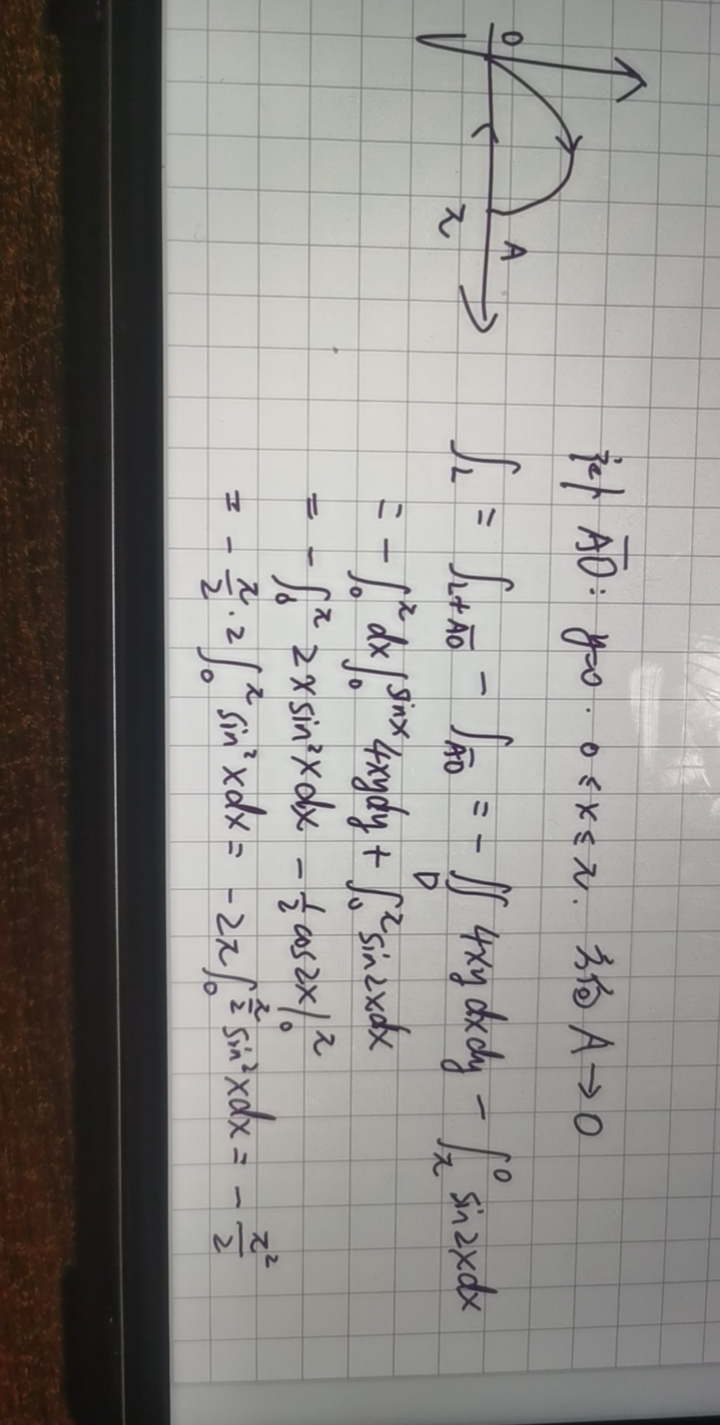 O A
π
补 A̅O̅: y=0. 0≤x≤π. 方向 A→O
∫_L = ∫_{L+A̅O̅} - ∫_{A̅O̅} = -∬_D 4xy dxdy - ∫_π^0 sin2xdx
= -∫_0^π dx∫_0^{sinx} 4xydy + ∫_0^π sin2xdx
= -∫_0^π 2xsin²xdx - ½cos2x|_0^π
= -π/2·2∫_0^π sin²xdx = -2π∫_0^{π/2} sin²xdx = -π²/2